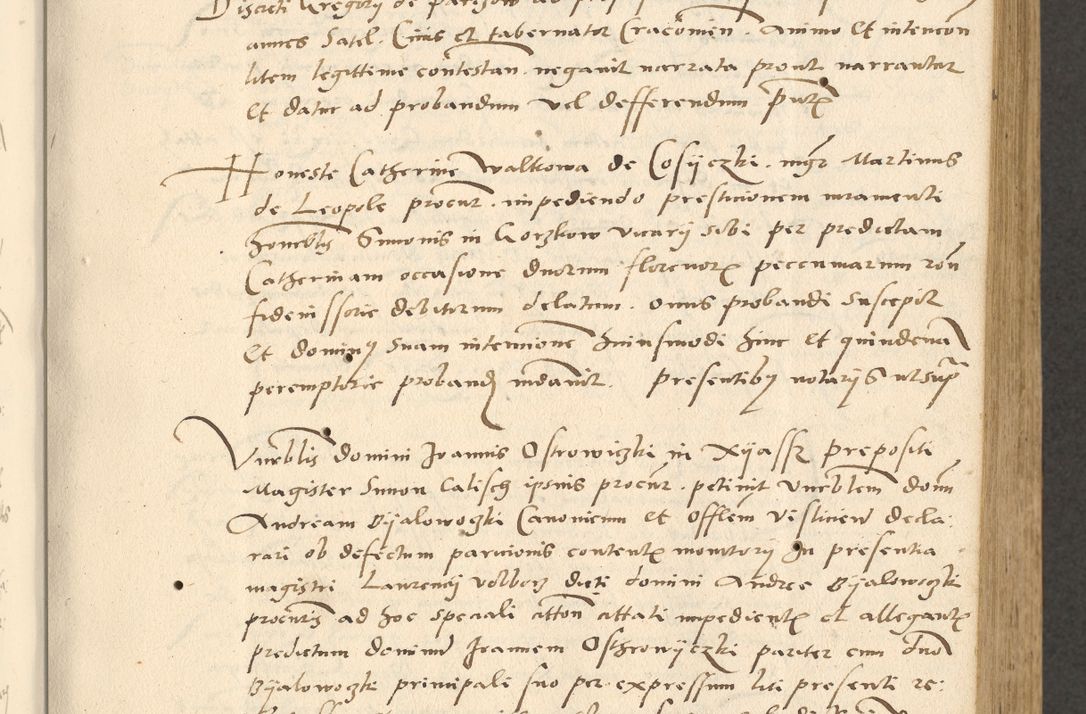 Discreti Gregorij de
annes Satel. Civis et tabernator Cracovien. Animo et intencon
litem legittime contestan. negavit narrata prout narrantur
Et datur ad probandum vel defferendum
Honeste Catherine Walkowa de Cosijczki. mgr Martinus
de Leopole procur. impediendo prestitionem iuramenti
honeblis Simonis in Gorzkow vicarij sibi per predictam
Catherinam occasione duorum florenor peccuniarum ron
fideiussorie debitorum delatum. onus probandi suscepit
Et dominus suam intencione huiusmodi hinc et quindena
peremptorie proband mdavit. Presentibus notarijs ut supra
Vneblis domini Joannis Ostrowiczki in Xijassz prepositi
Magister Simon Calisch ipsius procur. petivit Vneblem domn
Andream Bijalowoczki Canonicum et Offlem Visliciens decla-
rari ob defectum paricionis content monitorij In presentia
magistri Laurencij volborz dicti domini Andree Bijalowoczki
procuris ad hoc speciali citton cittati impedient et allegant
predictum dominum Joannem Osthrowijczki pariter cum dno
Bijalowoczki principali suo per expressum liti presenti re-